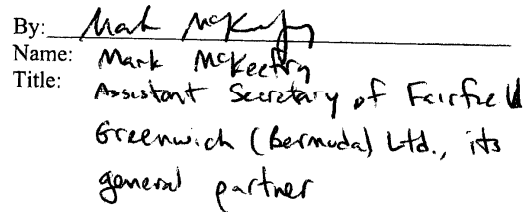 By: Mark McKeefry
Name: Mark McKeefry
Title: Assistant Secretary of Fairfield
Greenwich (Bermuda) Ltd., its
general partner